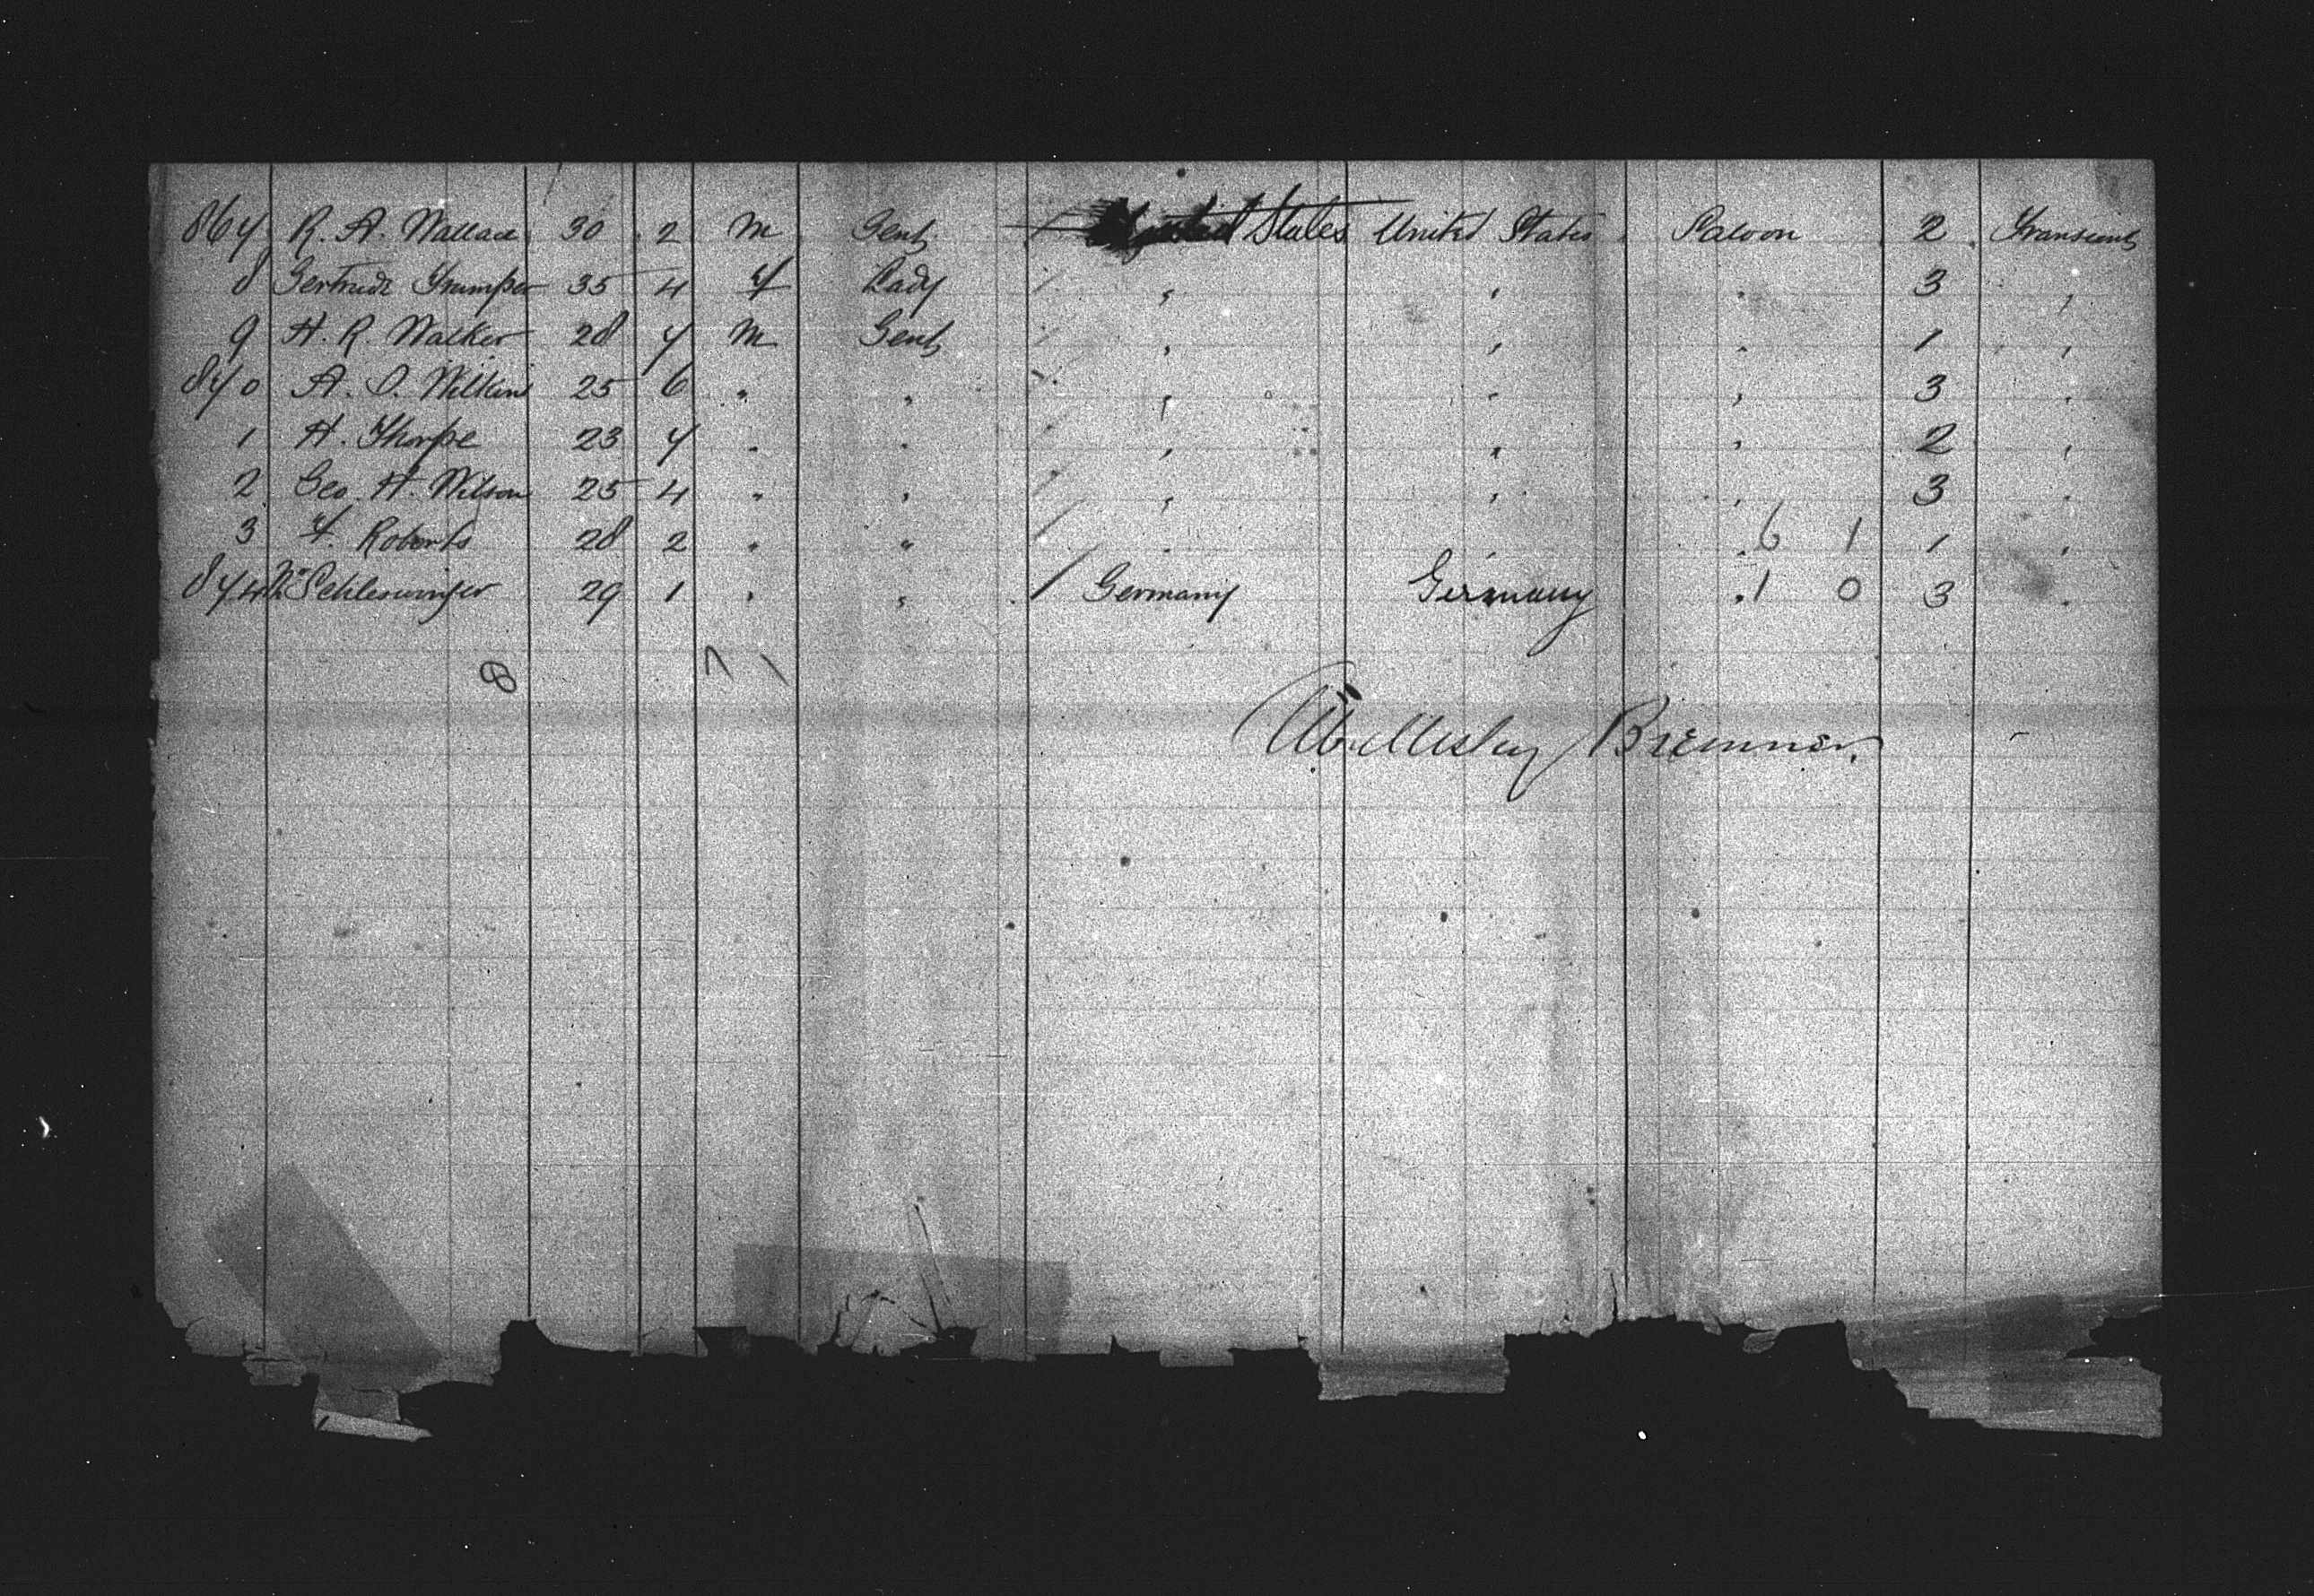 867 R. A. Wallace 30 2 M Gent / United States United States Saloon 2 Transient
8 Gertrude Trumper 35 4 F Lady / " " " 3 "
9 H. R. Walker 28 7 M Gent / " " " 1 "
870 A. O. Wilkins 25 6 " " / " " " 3 "
1 H. Thorpe 23 7 " " / " " " 2 "
2 Geo. H. Wilson 25 4 " " / " " " 3 "
3 F. Roberts 28 2 " " / " " " 6 1 1 "
874 Mr Schlesinger 29 1 " " / Germany Germany " 1 0 3 "
8 7 1
Wellesley Bremner.